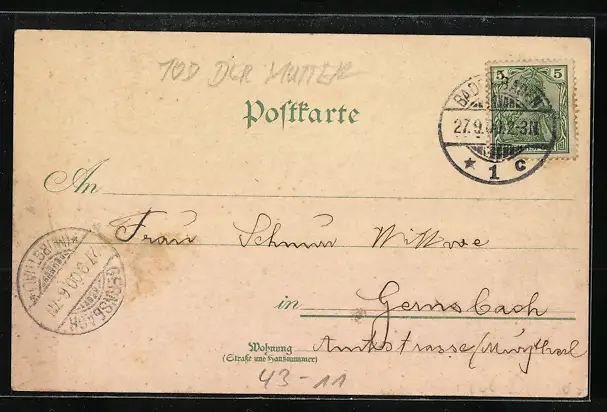 TOD DER MUTTER
Postkarte
5 5
BADEN-BADEN
27.9.00.2-3N
* 1 c
An
Frau Schnur Wittwe
GERNSBACH
27.9.00.6-7N
(MURGTHAL)
in Gernsbach
Wohnung
(Straße und Hausnummer)
Amtsstrasse/Murgthal
43-11